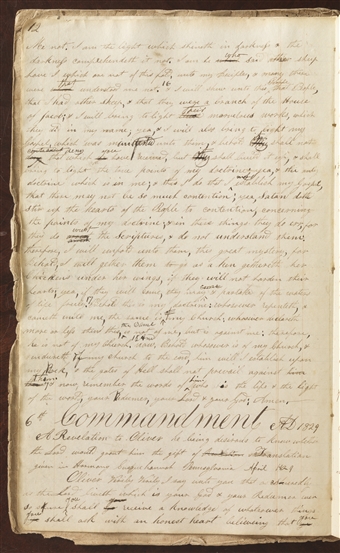 12
me not. I am the light which shineth in darkness & the
darkness comprehendeth it not. I am he who said other sheep
have I which are not of this fold, unto my Disciples, & many there
were that understood me not. 16 & I will shew unto this People,
that I had other sheep, & that they were a branch of the House
of Jacob; & I will bring to light their marvelous works, which
they did in my name; yea, & I will also bring to light my
Gospel, which was ministered unto them, & behold they shall not
deny that which you have received, but they shall build it up, & shall
bring to light the true points of my doctrine; yea, & the only
doctrine which is in me; & this I do that I may establish my Gospel,
that there may not be so much contention; yea, Satan doth
stir up the hearts of the People to contention, concerning
the points of my doctrine; & in these things they do err, for
they do wrest the Scriptures, & do not understand them;
therefore, I will unfold unto them, this great mystery, for
behold, I will gather them as a hen gathereth her
chickens under her wings, if they will not harden their
hearts; yea, if they will come, they may partake of the waters
of life freely. Behold this is my doctrine: whosoever repenteth, &
cometh unto me, the same is my Church; whosoever declareth
more or less than this the same is not of me, but is against me; therefore,
he is not of my Church. & now, behold whosoever is of my Church, &
endureth of my Church to the end, him will I establish upon
my Rock, & the gates of Hell shall not prevail against him
& now, remember the words of him who is the life & the light
of the world, your Redeemer, your Lord & your God; Amen.
6th Commandment AD 1829
A Revelation to Oliver he being desirous to know whether
the Lord would grant him the gift of Translation
given in Harmony Susquehannah Pennsylvania April 1829
Oliver Verily Verily I say unto you that as Assuredly
as the Lord liveth which is your God & your Redeemer even
so sure shall you receive a knowledge of whatsoever things
you shall ask with an honest heart believing that you